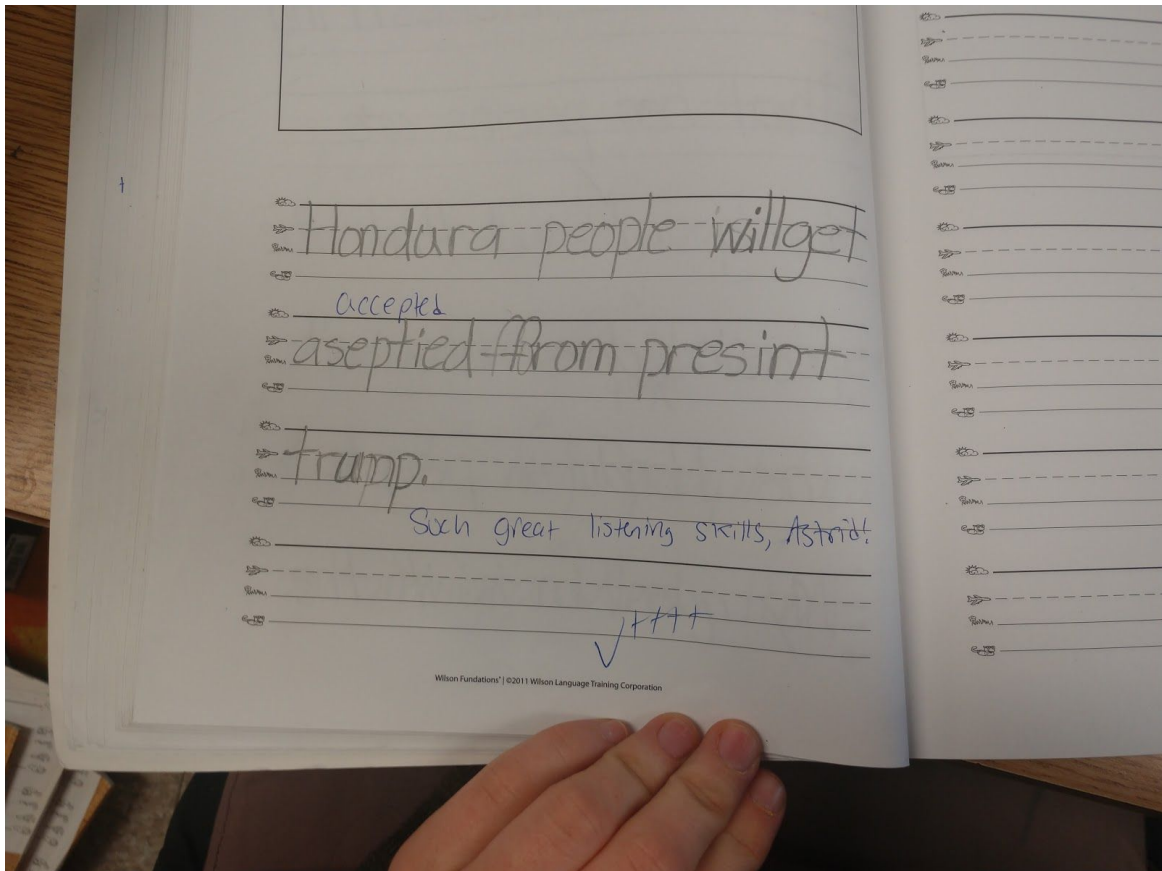 Hondura people will get
accepted
aseptied from presint
trump.
Such great listening skills, Astrid!
✓++++
Wilson Fundations® | ©2011 Wilson Language Training Corporation